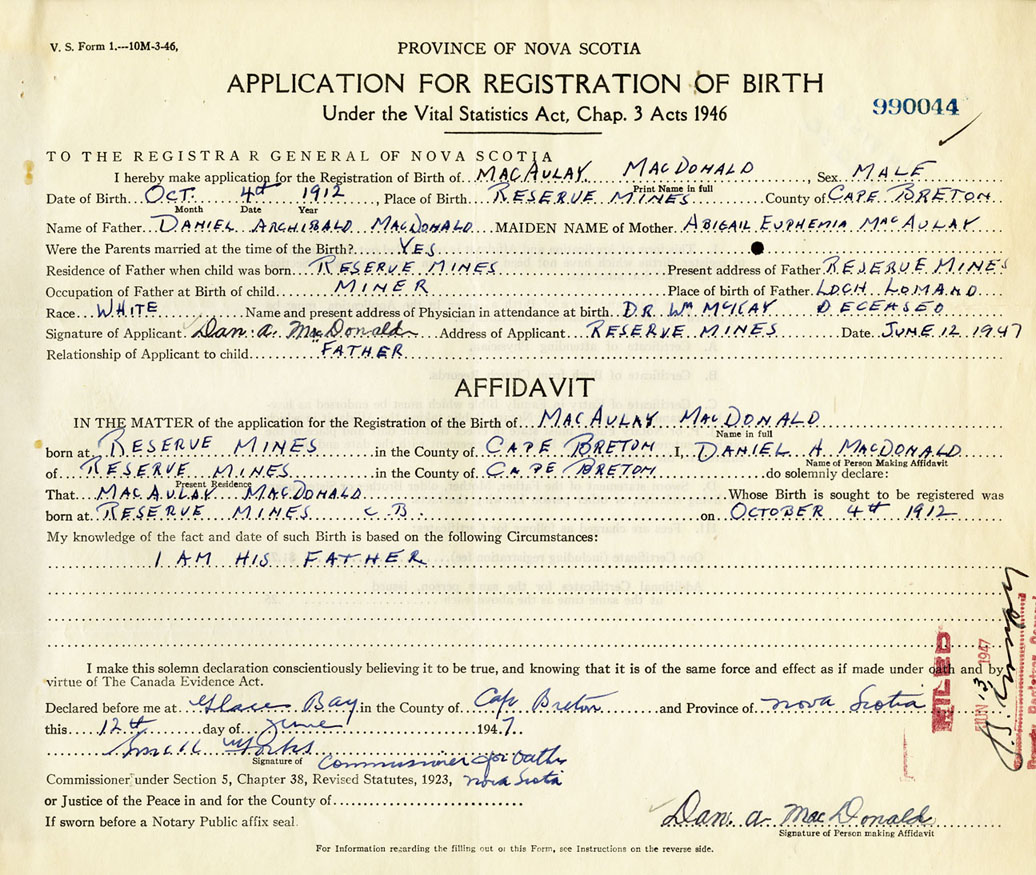 V. S. Form 1.---10M-3-46,
PROVINCE OF NOVA SCOTIA
APPLICATION FOR REGISTRATION OF BIRTH
Under the Vital Statistics Act, Chap. 3 Acts 1946
990044
TO THE REGISTRAR GENERAL OF NOVA SCOTIA
I hereby make application for the Registration of Birth of MACAULAY MACDONALD, Sex MALE
Print Name in full
Date of Birth OCT. 4th 1912, Place of Birth RESERVE MINES County of CAPE BRETON
Month Date Year
Name of Father DANIEL ARCHIBALD MACDONALD MAIDEN NAME of Mother ABIGAIL EUPHEMIA MACAULAY
Were the Parents married at the time of the Birth? YES
Residence of Father when child was born RESERVE MINES Present address of Father RESERVE MINES
Occupation of Father at Birth of child MINER Place of birth of Father LOCH LOMAND
Race WHITE Name and present address of Physician in attendance at birth DR. Wm MCKAY DECEASED
Signature of Applicant Dan. a. MacDonald Address of Applicant RESERVE MINES Date JUNE 12 1947
Relationship of Applicant to child FATHER
AFFIDAVIT
IN THE MATTER of the application for the Registration of the Birth of MACAULAY MACDONALD
Name in full
born at RESERVE MINES in the County of CAPE BRETON I, DANIEL A MACDONALD
Name of Person Making Affidavit
of RESERVE MINES in the County of CAPE BRETON do solemnly declare:
Present Residence
That MACAULAY MACDONALD Whose Birth is sought to be registered was
born at RESERVE MINES C.B. on OCTOBER 4th 1912
My knowledge of the fact and date of such Birth is based on the following Circumstances:
I AM HIS FATHER
I make this solemn declaration conscientiously believing it to be true, and knowing that it is of the same force and effect as if made under oath and by
virtue of The Canada Evidence Act.
Declared before me at Glace Bay in the County of Cape Breton and Province of Nova Scotia
this 12th day of June 1947
Signature of Commissioner for Oaths
Commissioner under Section 5, Chapter 38, Revised Statutes, 1923, Nova Scotia
or Justice of the Peace in and for the County of
If sworn before a Notary Public affix seal.
Dan. a. MacDonald
Signature of Person making Affidavit
For Information regarding the filling out of this Form, see Instructions on the reverse side.
FILED
JUN 13 1947